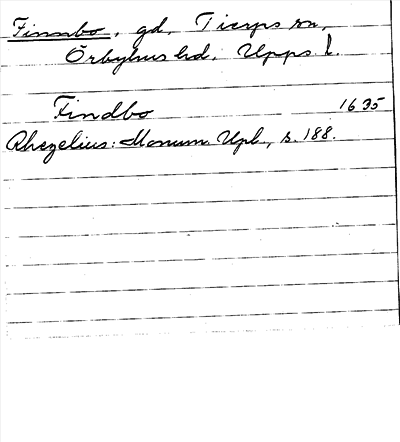 Finnbo, gd, Tierps sn,
Örbyhus hd, Upps. l.
Findbo 1635
Rhezelius: Monum. Upl., s. 188.